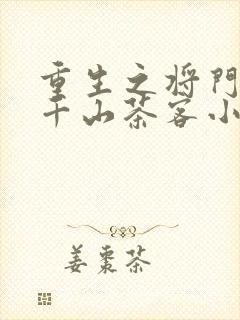 重生之将门
千山茶客小
姜枣茶